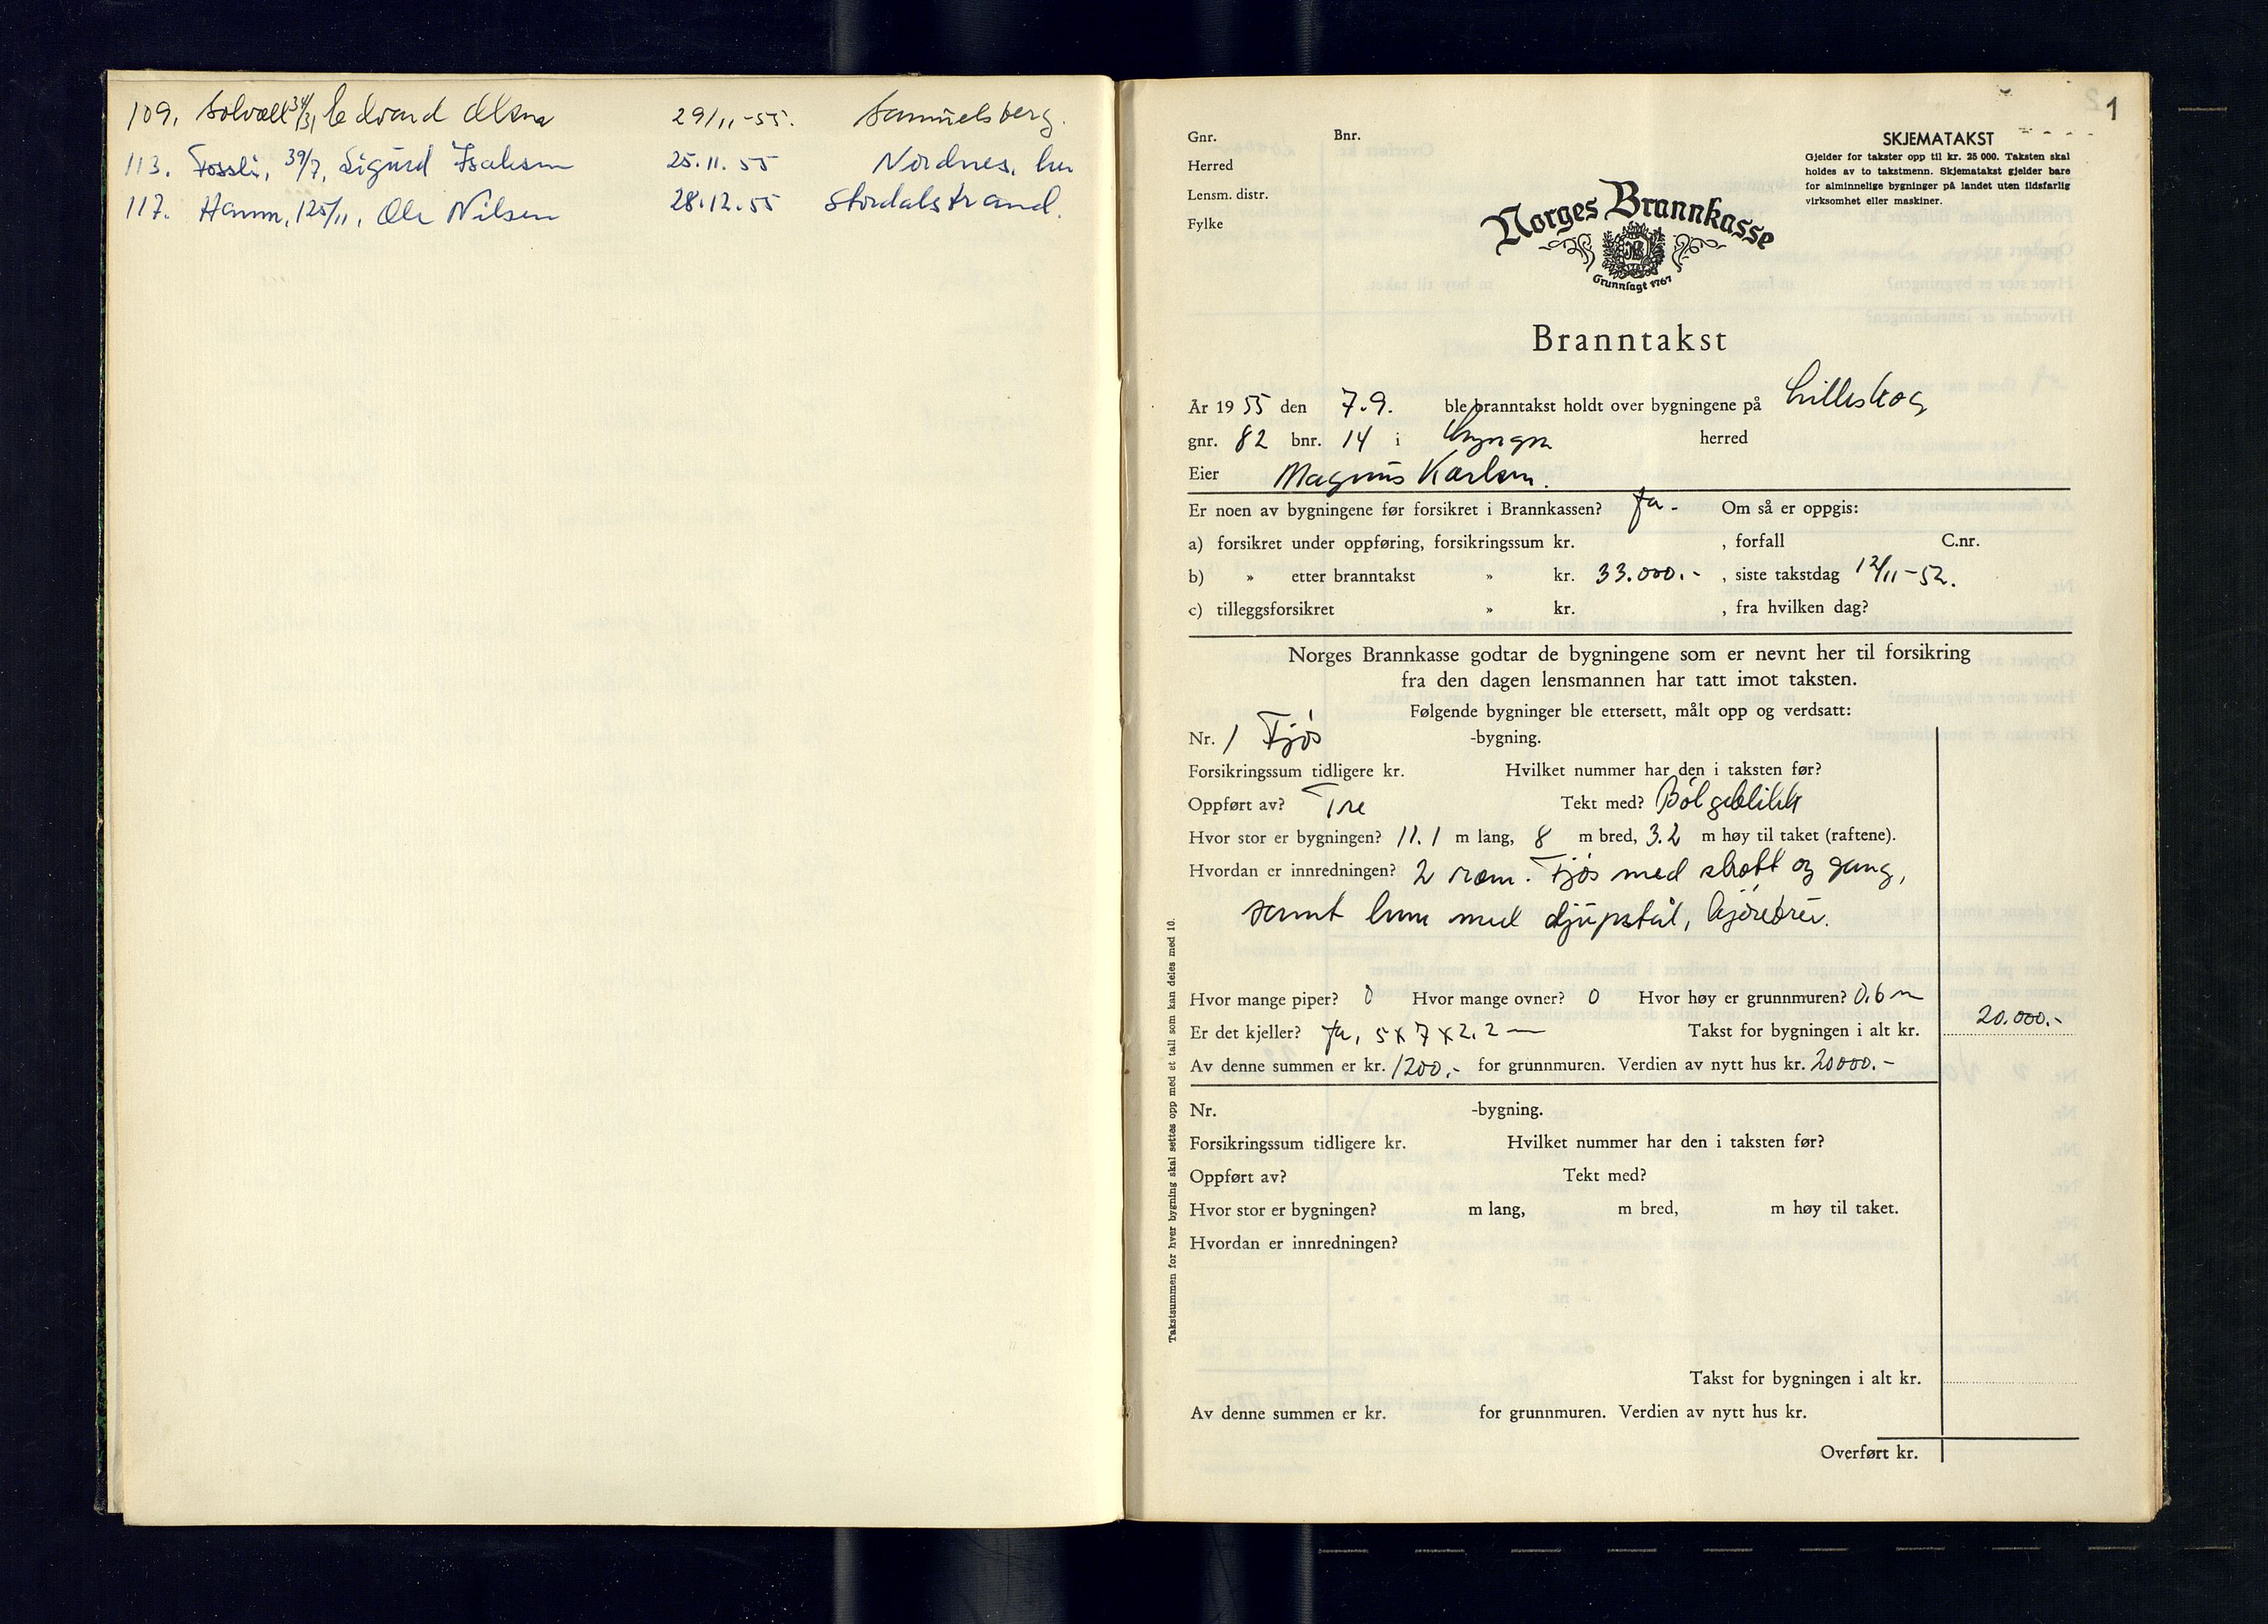 109. Solvoll 34/31, Edvard Olsen 29/11-55. Samuelsberg.
113. Fossli, 39/7, Sigurd Isaksen 25.11.55 Nordnes,
117. Hamn, 125/11, Ole Nilsen 28.12.55 Stordalstrand.
1
Gnr. Bnr.
Herred
Lensm. distr.
Fylke
SKJEMATAKST
Gjelder for takster opp til kr. 25 000. Taksten skal
holdes av to takstmenn. Skjematakst gjelder bare
for alminnelige bygninger på landet uten ildsfarlig
virksomhet eller maskiner.
Norges Brannkasse
Grunnlagt 1767
Branntakst
År 1955 den 7.9. ble branntakst holdt over bygningene på Lilleskog
gnr. 82 bnr. 14 i Lyngen herred
Eier Magnus Karlsen.
Er noen av bygningene før forsikret i Brannkassen? Ja. Om så er oppgis:
a) forsikret under oppføring, forsikringssum kr. , forfall C.nr.
b) » etter branntakst » kr. 33.000.- , siste takstdag 12/11-52.
c) tilleggsforsikret » kr. , fra hvilken dag?
Norges Brannkasse godtar de bygningene som er nevnt her til forsikring
fra den dagen lensmannen har tatt imot taksten.
Følgende bygninger ble ettersett, målt opp og verdsatt:
Nr. 1 Fjøs -bygning.
Forsikringssum tidligere kr. Hvilket nummer har den i taksten før?
Oppført av? Tre Tekt med? Bølgeblikk
Hvor stor er bygningen? 11.1 m lang, 8 m bred, 3.2 m høy til taket (raftene).
Hvordan er innredningen? 2 rom. Fjøs med skott og gang,
samt lem med djupstål, kjørebru.
Hvor mange piper? 0 Hvor mange ovner? 0 Hvor høy er grunnmuren? 0.6 m
Er det kjeller? Ja, 5x7x2.2 Takst for bygningen i alt kr. 20.000.-
Av denne summen er kr. 1200.- for grunnmuren. Verdien av nytt hus kr. 20000.-
Nr. -bygning.
Forsikringssum tidligere kr. Hvilket nummer har den i taksten før?
Oppført av? Tekt med?
Hvor stor er bygningen? m lang, m bred, m høy til taket.
Hvordan er innredningen?
Takst for bygningen i alt kr.
Av denne summen er kr. for grunnmuren. Verdien av nytt hus kr.
Overført kr.
Takstsummen for hver bygning skal settes opp med et tall som kan deles med 10.